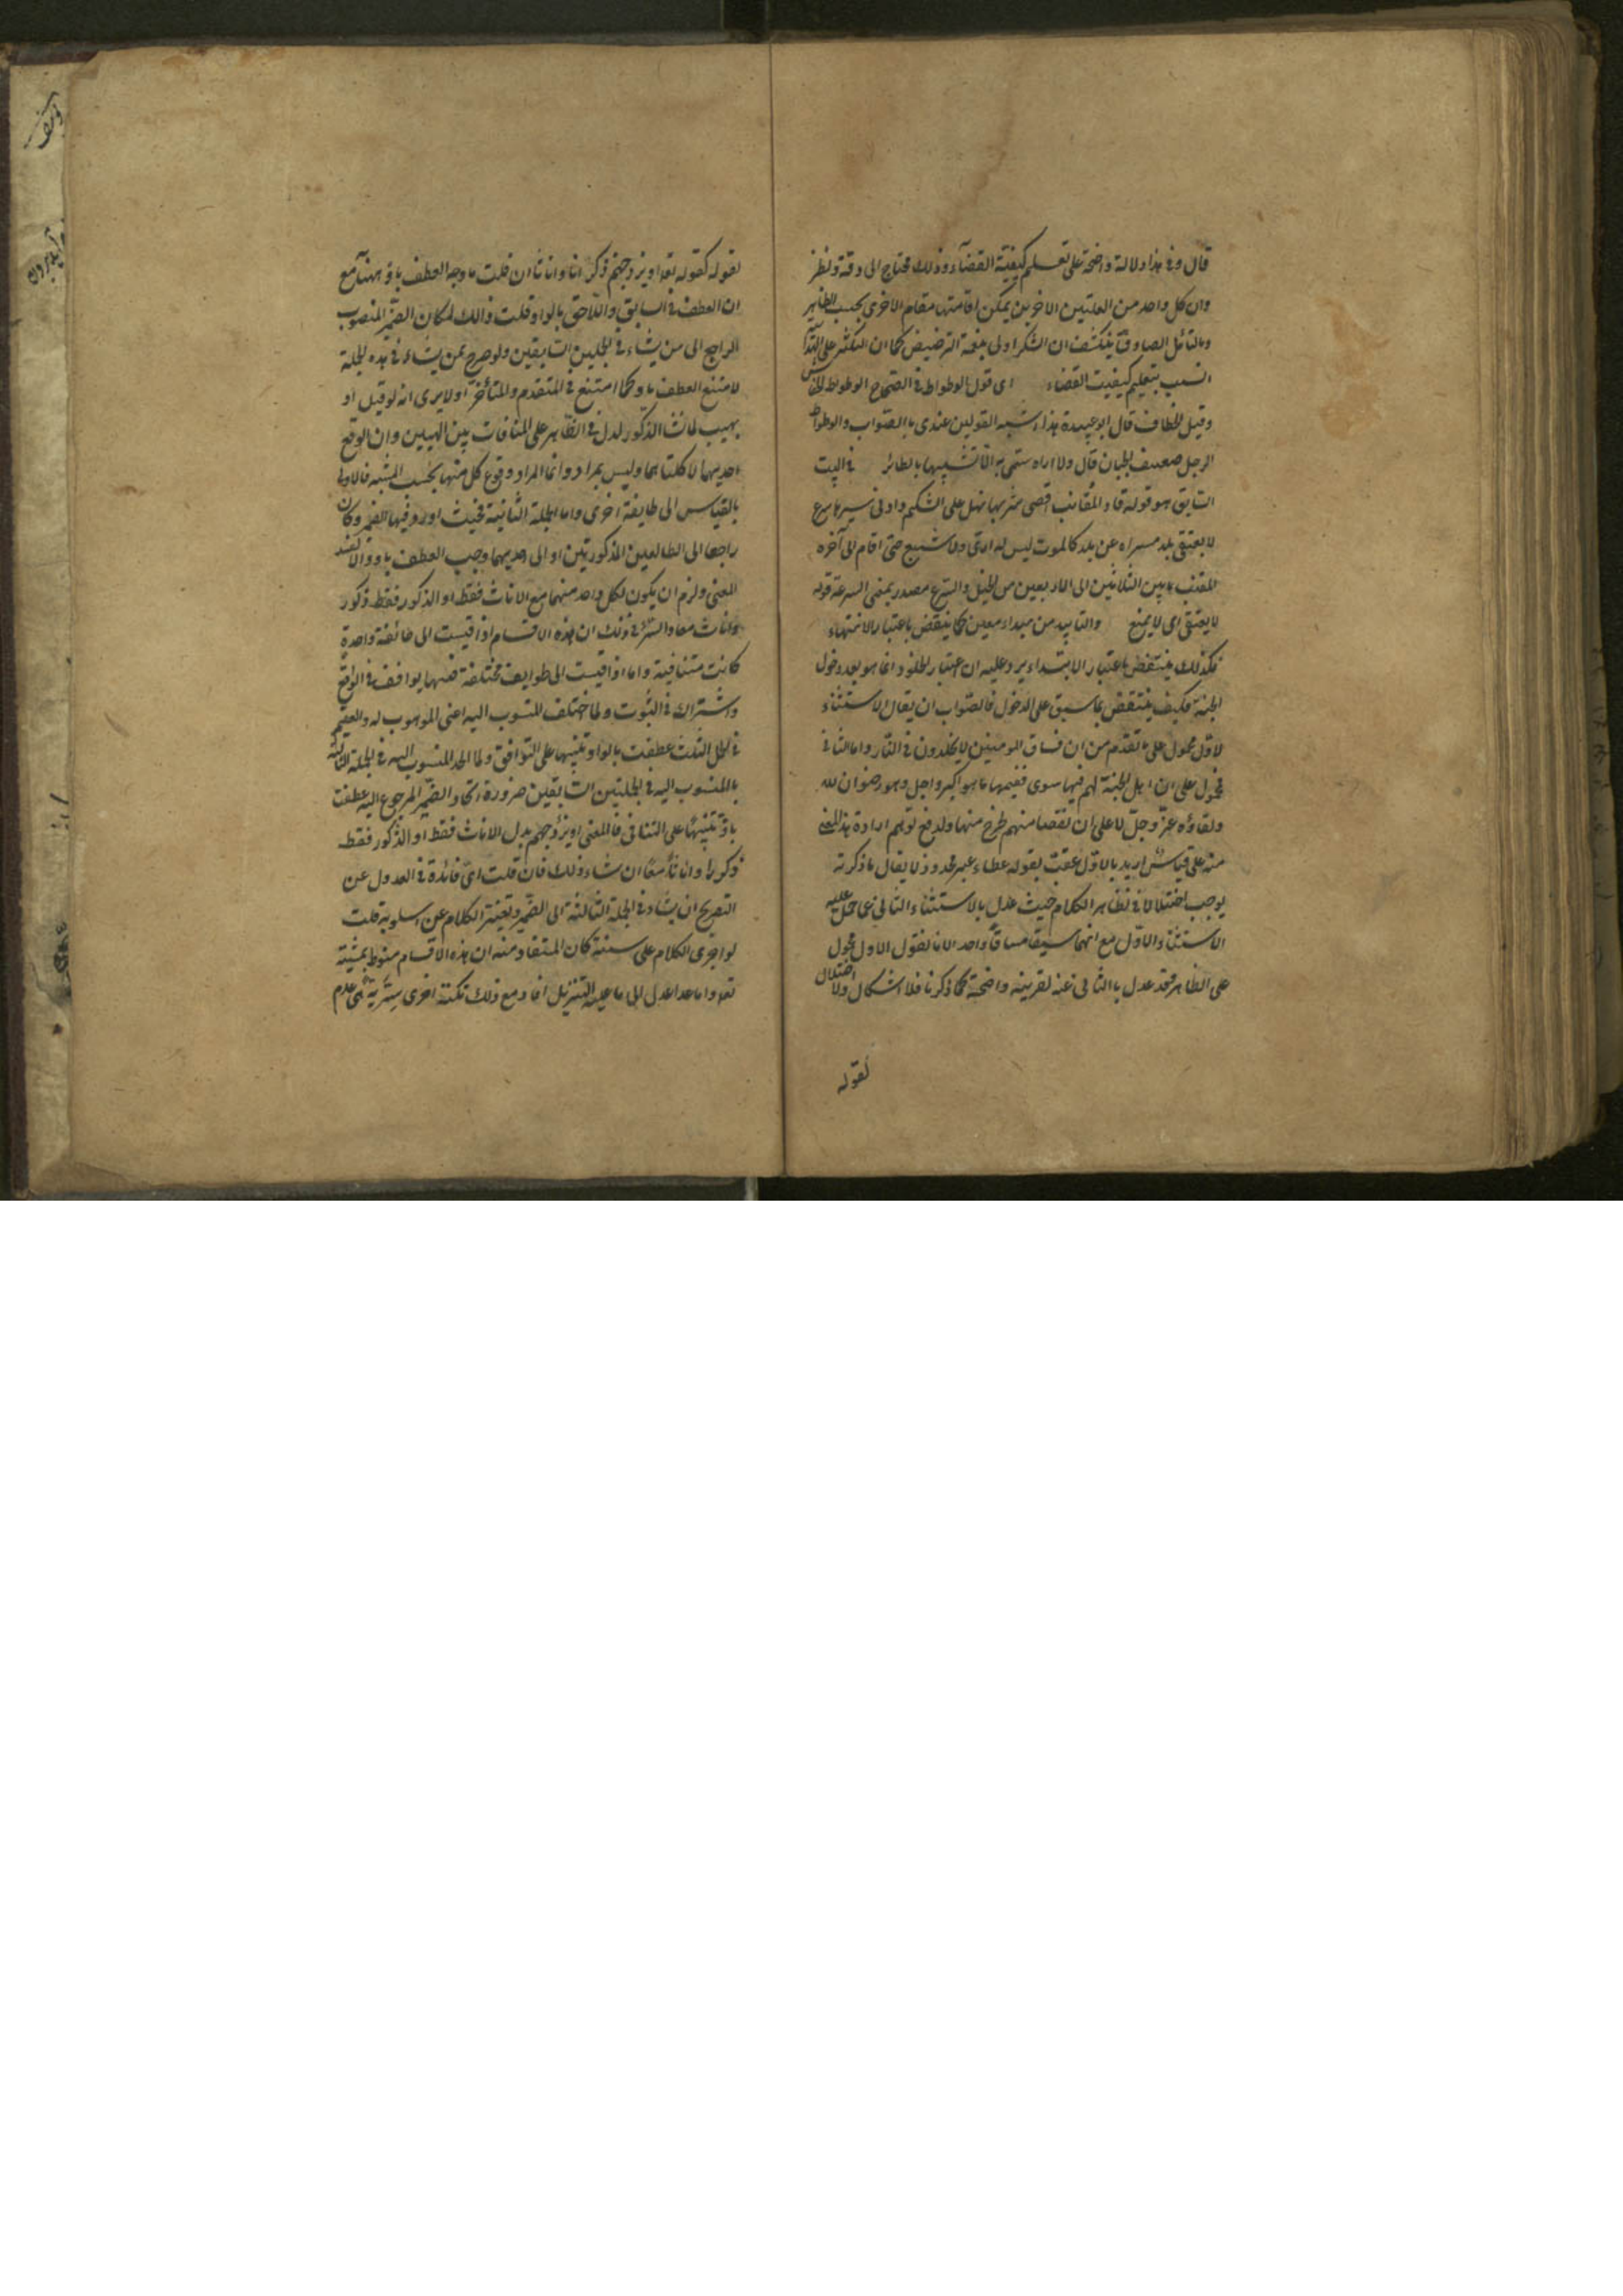 قال وفي هذا دلالة واضحة على تعليم كيفية القضاء وذلك محتاج الى دقة ونظر
وان كل واحد من العلتين الاخريين يمكن اقامتها مقام الاخرى بحسب الظاهر
وبالتأمل الصادق ينكشف ان الشكر اولى بنعمة الترخيص كما ان التكثير على
انسب بتعليم كيفيت القضاء اى قول الوطواط في الصحاح الوطواط الخفاش
وقيل الخطاف قال ابو عبيدة هذا اشبه القولين عندى بالصواب والوطواط
الرجل ضعيف الجبان قال ولا اراه سمى به الا تشبيها بالطائر في البيت
السابق هو قوله قاد المقانب اقصى شربها نهل على الشكيم وادنى سيرها سرع
لا يعتقى بلد مسراه عن بلد كالموت ليس له رى ولا شبع حتى اقام الى آخره
المقنب ما بين الثلاثين الى الاربعين من الخيل والسرع مصدر بمعنى السرعة قوله
لا يعتقى اى لا يمنع والتابيد من مبداء معين كما ينتقض باعتبار الانتهاء
فكذلك ينتقض باعتبار الابتداء يرد عليه ان اعتبار الخلود انما هو بعد دخول
الجنة فكيف ينتقض بما سبق على الدخول فالصواب ان يقال الاستثناء
لاول محمول على ما تقدم من ان فساق المومنين لا يخلدون في النار واما الثانى
فمحمول على ان اهل الجنة لهم فيها سوى نعيمها ما هو اكبر واجل وهو رضوان الله
ولقاؤه عز وجل لا على ان نقصا منهم طرح منها ولدفع توهم ارادة هذا المعنى
منه على قياس اريد بالاول عقب بقوله عطاء غير مجذوذ لا يقال ما ذكرته
يوجب اختلالا في نظاهر الكلام حيث عدل بالاستثناء الثانى عما حمل عليه
الاستثناء الاول مع انهما سيقا مساقا واحدا لانا نقول الاول محمول
على الظاهر وقد عدل بالثانى عنه لقرينة واضحة كما ذكرنا فلا اشكال ولا اختلال
لقوله
لقوله كقوله تعه او يزوجهم ذكرانا واناثا ان قلت ما وجه العطف باو ههنا مع
ان العطف في السابق واللاحق بالواو قلت ذالك لمكان الضمير المنصوب
الراجع الى من يشاء في الجملتين السابقين ولو صرح بمن يشاء في هذه الجملة
لامتنع العطف باو كما امتنع في المتقدم والمتأخر اولا يرى انه لو قيل او
يهب لمن يشاء الذكور لدل في الظاهر على المنافات بين الهبتين وان الواقع
احديهما لا كلتاهما وليس بمراد وانما المراد وقوع كل منهما بحسب المشية فالاولى
بالقياس الى طايفة اخرى واما الجملة الثانية فحيث اورد فيها الضمير وكان
راجعا الى الطائفتين المذكورتين او الى احديهما وجب العطف باو والا لفسد
المعنى ولزم ان يكون لكل واحد منهما مع الاناث فقط او الذكور فقط ذكور
واناث معا والسر في ذلك ان هذه الاقسام اذا قيست الى طائفة واحدة
كانت متنافية واما اذا قيست الى طوايف مختلفة فبينها توافق في الواقع
واشتراك في الثبوت ولما اختلف المنسوب اليه اعنى الموهوب له والعقيم
في الجمل الثلث عطفت بالواو تنبيها على التوافق ولما اتحد المنسوب اليه في الجملة الثالثة
بالمنسوب اليه في الجملتين السابقين ضرورة اتحاد الضمير المرجوع اليه عطفت
باو تنبيها على التنافى فالمعنى او يزوجهم بدل الاناث فقط او الذكور فقط
ذكورا واناثا معا ان شاء ذلك فان قلت اى فائدة في العدول عن
التصريح ان يشاء في الجملة الثالثة الى الضمير وتغيير الكلام عن اسلوبه قلت
لو اجرى الكلام على سننه كان المستفاد منه ان هذه الاقسام منوط بمشيته
تعه واما عدا عدل الى ما عليه التنزيل افاد مع ذلك نكتة اخرى سرية هى عدم